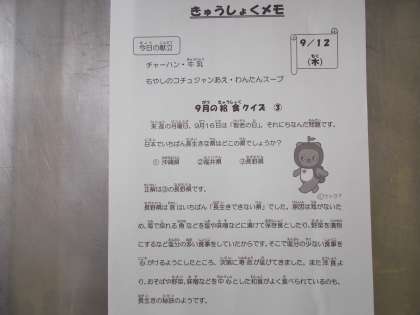 きゅうしょくメモ
今日の献立
9/12
(木)
チャーハン・牛乳
もやしのコチュジャンあえ・わんたんスープ
9月の給食クイズ ③
来週の月曜日、9月16日は「敬老の日」。それにちなんだ問題です。
日本でいちばん長生きな県はどこの県でしょうか?
① 沖縄県 ②福井県 ③長野県
正解は③の長野県です。
長野県は昔はいちばん「長生きできない県」でした。原因は海がないた
め、海で採れる魚などを塩や味噌などに漬けて保存食としたり、野菜を漬物
にするなど塩分の多い食事をしていたからです。そこで塩分の少ない食事を
心がけるようにしたところ、次第に寿命が延びてきました。また洋食よ
り、おそばや野菜、味噌などを中心とした和食がよく食べられているのも、
長生きの秘訣のようです。